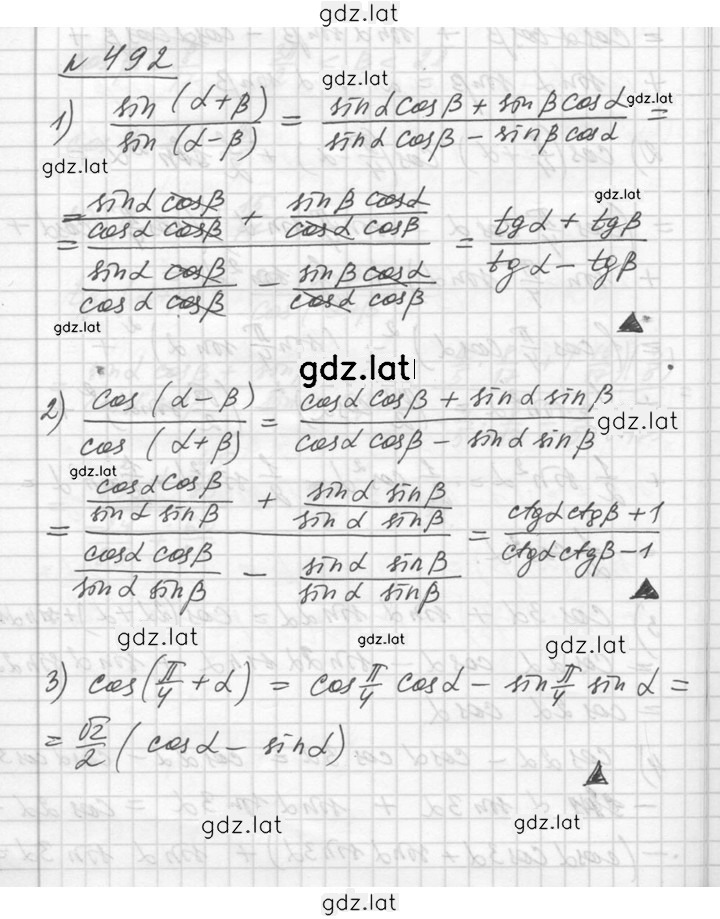 gdz.lat
№ 492
gdz.lat
1) sin (α+β) / sin (α-β) = (sinα cosβ + sinβ cosα) / (sinα cosβ - sinβ cosα) =
gdz.lat
gdz.lat
gdz.lat
= (sinα cosβ / cosα cosβ + sinβ cosα / cosα cosβ) / (sinα cosβ / cosα cosβ - sinβ cosα / cosα cosβ) = (tgα + tgβ) / (tgα - tgβ)
gdz.lat
gdz.lat
2) cos (α-β) / cos (α+β) = (cosα cosβ + sinα sinβ) / (cosα cosβ - sinα sinβ)
gdz.lat
gdz.lat
= (cosα cosβ / sinα sinβ + sinα sinβ / sinα sinβ) / (cosα cosβ / sinα sinβ - sinα sinβ / sinα sinβ) = (ctgα ctgβ + 1) / (ctgα ctgβ - 1)
gdz.lat
gdz.lat
gdz.lat
3) cos(π/4 + α) = cos π/4 cosα - sin π/4 sin α =
= √2/2 ( cosα - sinα)
gdz.lat
gdz.lat
gdz.lat